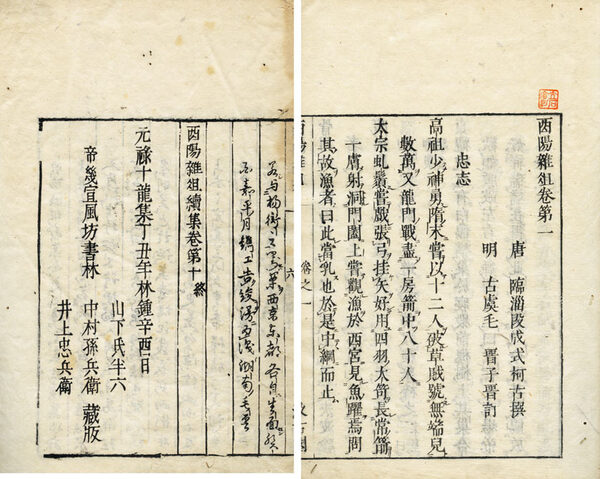 酉陽雜俎卷第一
唐 臨淄段成式柯古撰
明 古虞毛晋子晋訂
忠志
高祖少神勇隋末嘗以十二人破草賊號無端兒
數萬又龍門戰盡一房箭中八十人
太宗虬鬚嘗戲張弓挂矢好用四羽大笴長常箭
一膚射洞門闔上嘗觀漁於西宮見魚躍焉問
其故漁者曰此當乳也於是中網而止
酉陽雜俎續集卷第十終
元祿十龍集丁丑年林鐘辛酉日
帝幾宜風坊書林
山下氏半六
中村孫兵衛 藏版
井上忠兵衛